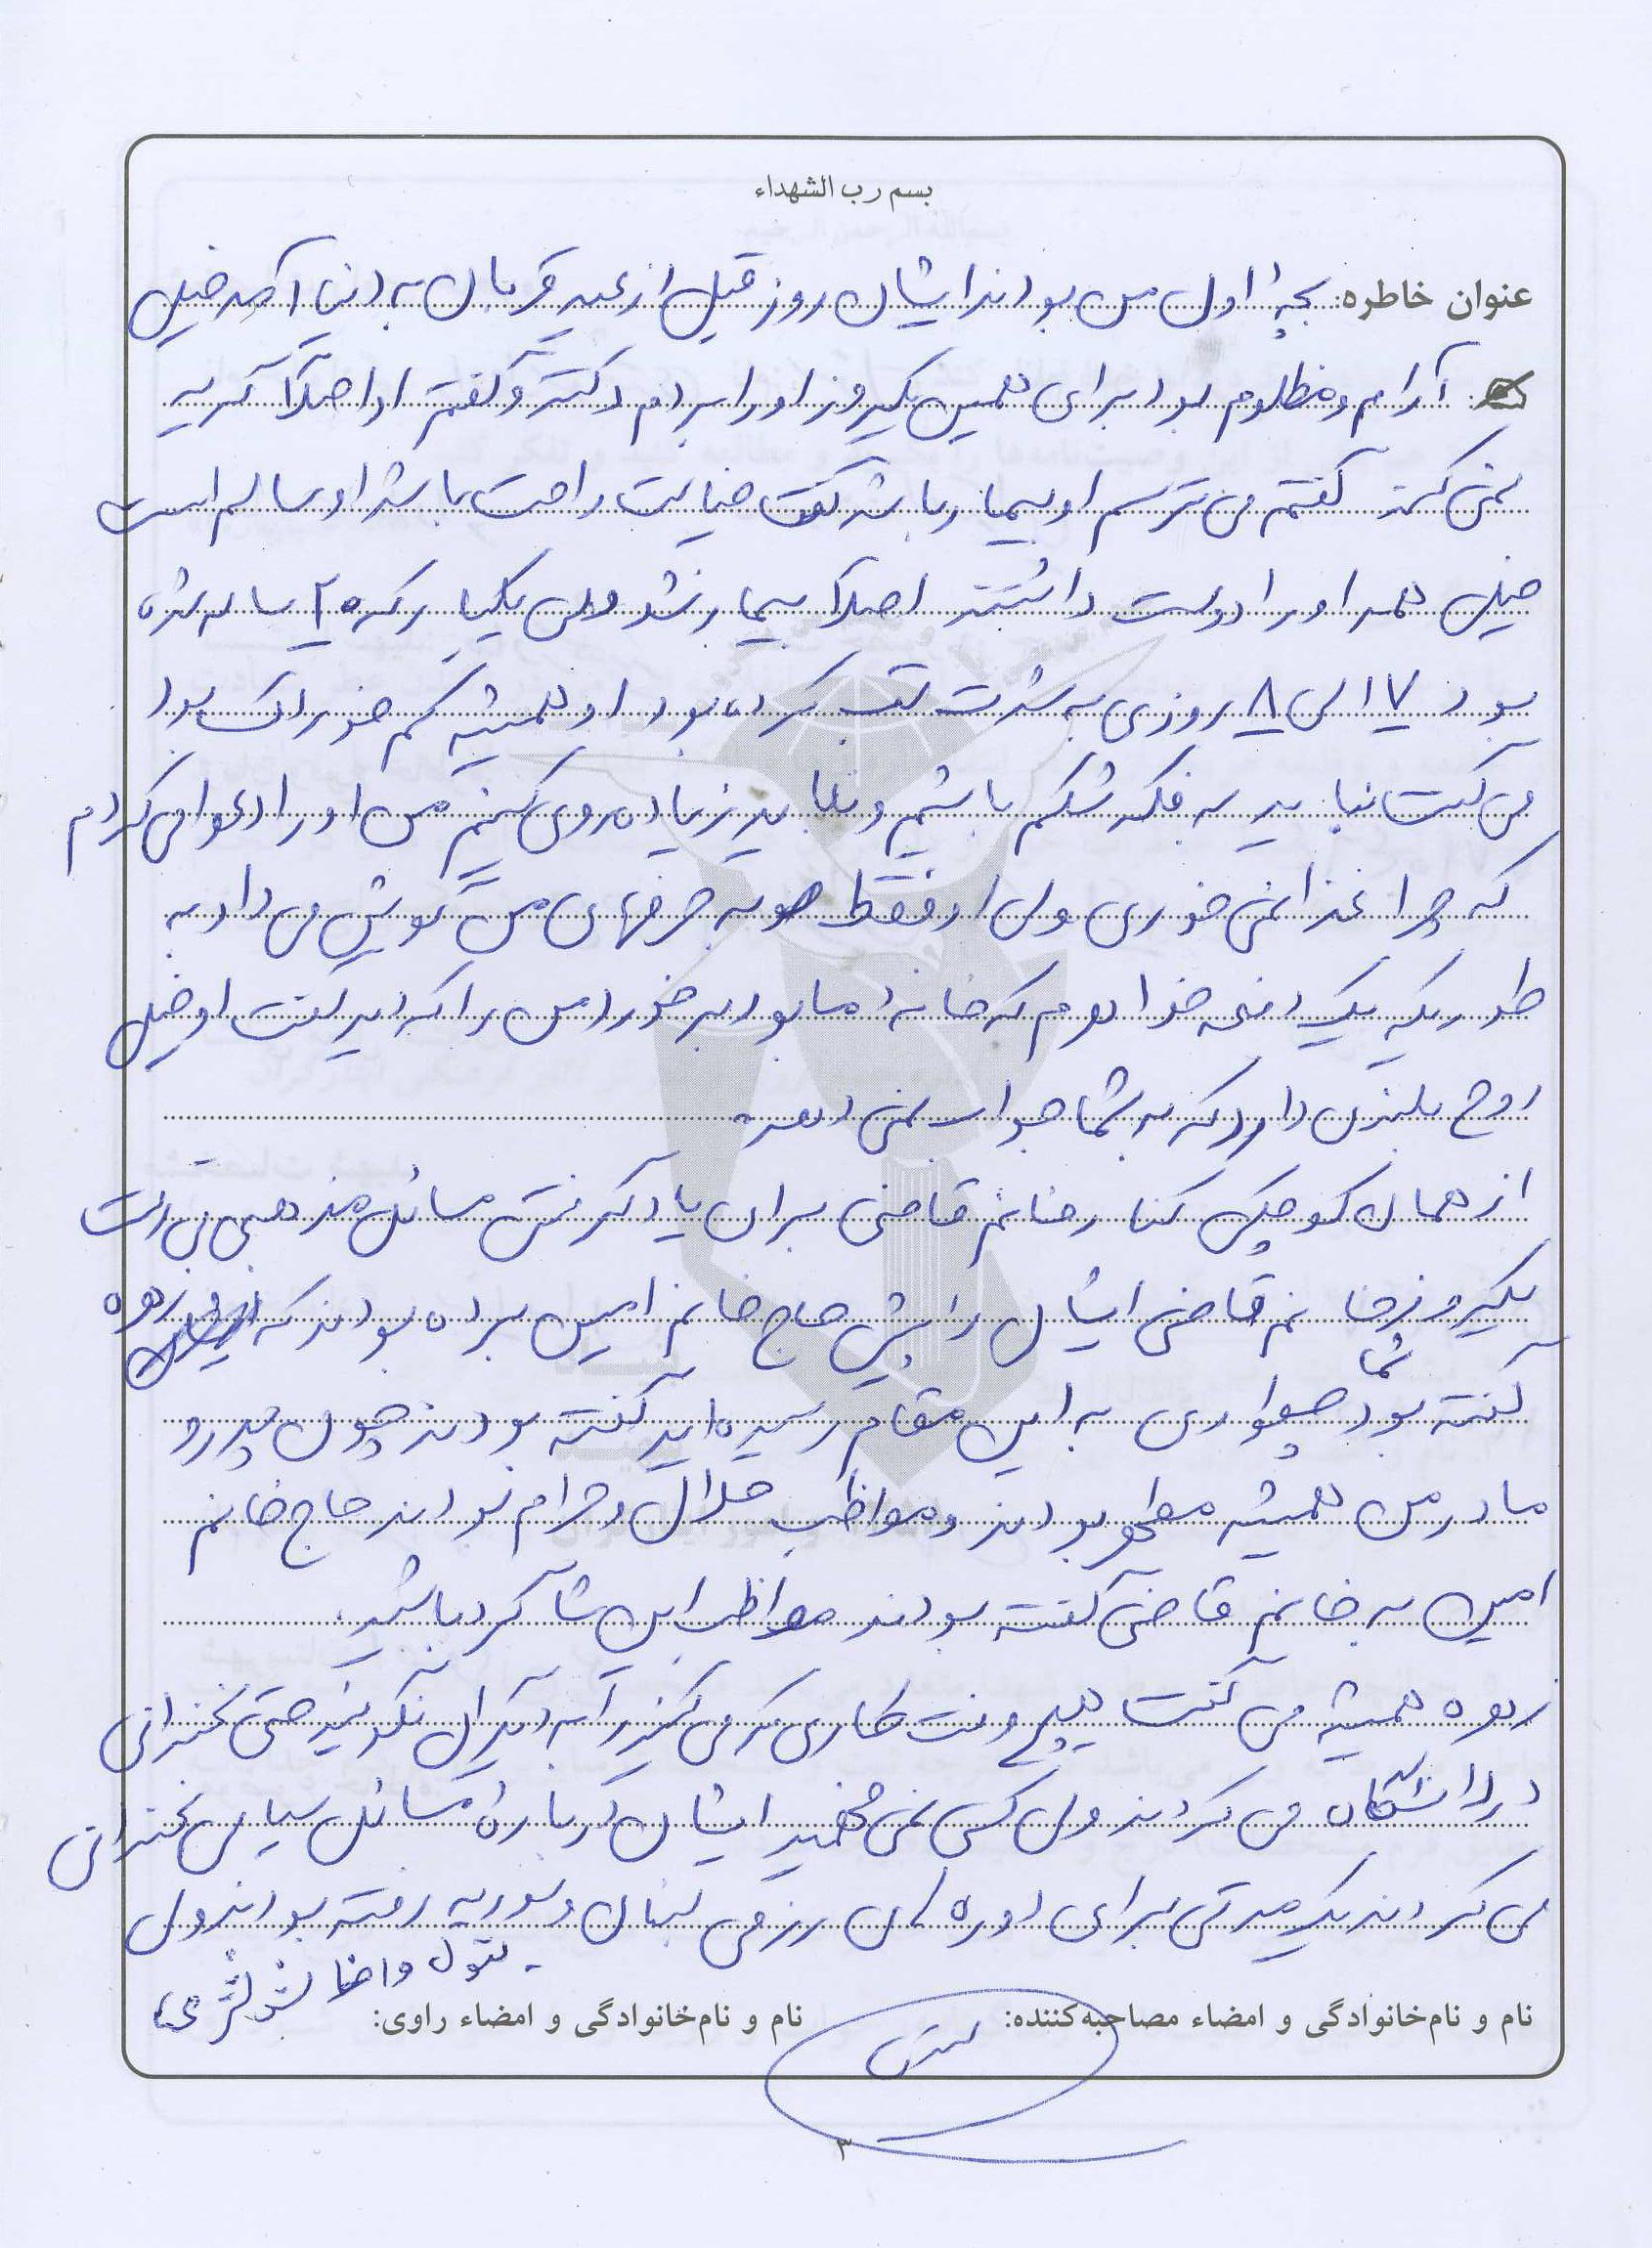 بسم رب الشهداء
عنوان خاطره: بچهٔ اول من بودند ایشان روز قبل از عید قربان به دنیا آمد خیلی
آرام و مظلوم بود برای همین یکروز او را بردم دکتر و گفتم او اصلاً گریه
نمی کند گفتم می ترسم او بیمار باشد گفت خیالت راحت باشد او سالم است
خیلی همه او را دوست داشتند اصلاً بیمار نشد ولی یکبار که ۲۰ ساله شده
بود ۷ الی ۸ روزی به شدت تب کرده بود او همیشه کم خوراک بود
می گفت نباید به فکر شکم باشیم و نباید زیاده روی کنیم من او را دعوا می کردم
که چرا غذا نمی خوری ولی او فقط به حرفهای من گوش می داد به
طوریکه یک دفعه خواهرم که خانهٔ ما بود برخورد من را که دید گفت او خیلی
روح بلندی دارد که به شما جواب نمی دهد
از همان کوچکی کنار خانم قاضی برای یاد گرفتن مسائل مذهبی می رفت
یکروز خانم قاضی ایشان را پیش حاج خانم امین برده بودند که زهره
گفته بود شما چطوری به این مقام رسیده اید گفته بودند چون پدر و
مادر من همیشه مطهر بودند و مواظب حلال و حرام بودند حاج خانم
امین به خانم قاضی گفته بودند مواظب این شاگرد باشید.
زهره همیشه می گفت هیچ وقت کاری که می کنید را به دیگران نگوئید حتی سخنرانی
در دانشگاه می کردند ولی کسی نمی فهمید ایشان دربارهٔ مسائل سیاسی سخنرانی
می کردند یک مدتی برای دوره های رزمی لبنان و سوریه رفته بودند ولی
نام و نام‌خانوادگی و امضاء مصاحبه‌کننده:
نام و نام‌خانوادگی و امضاء راوی: بتول
۳